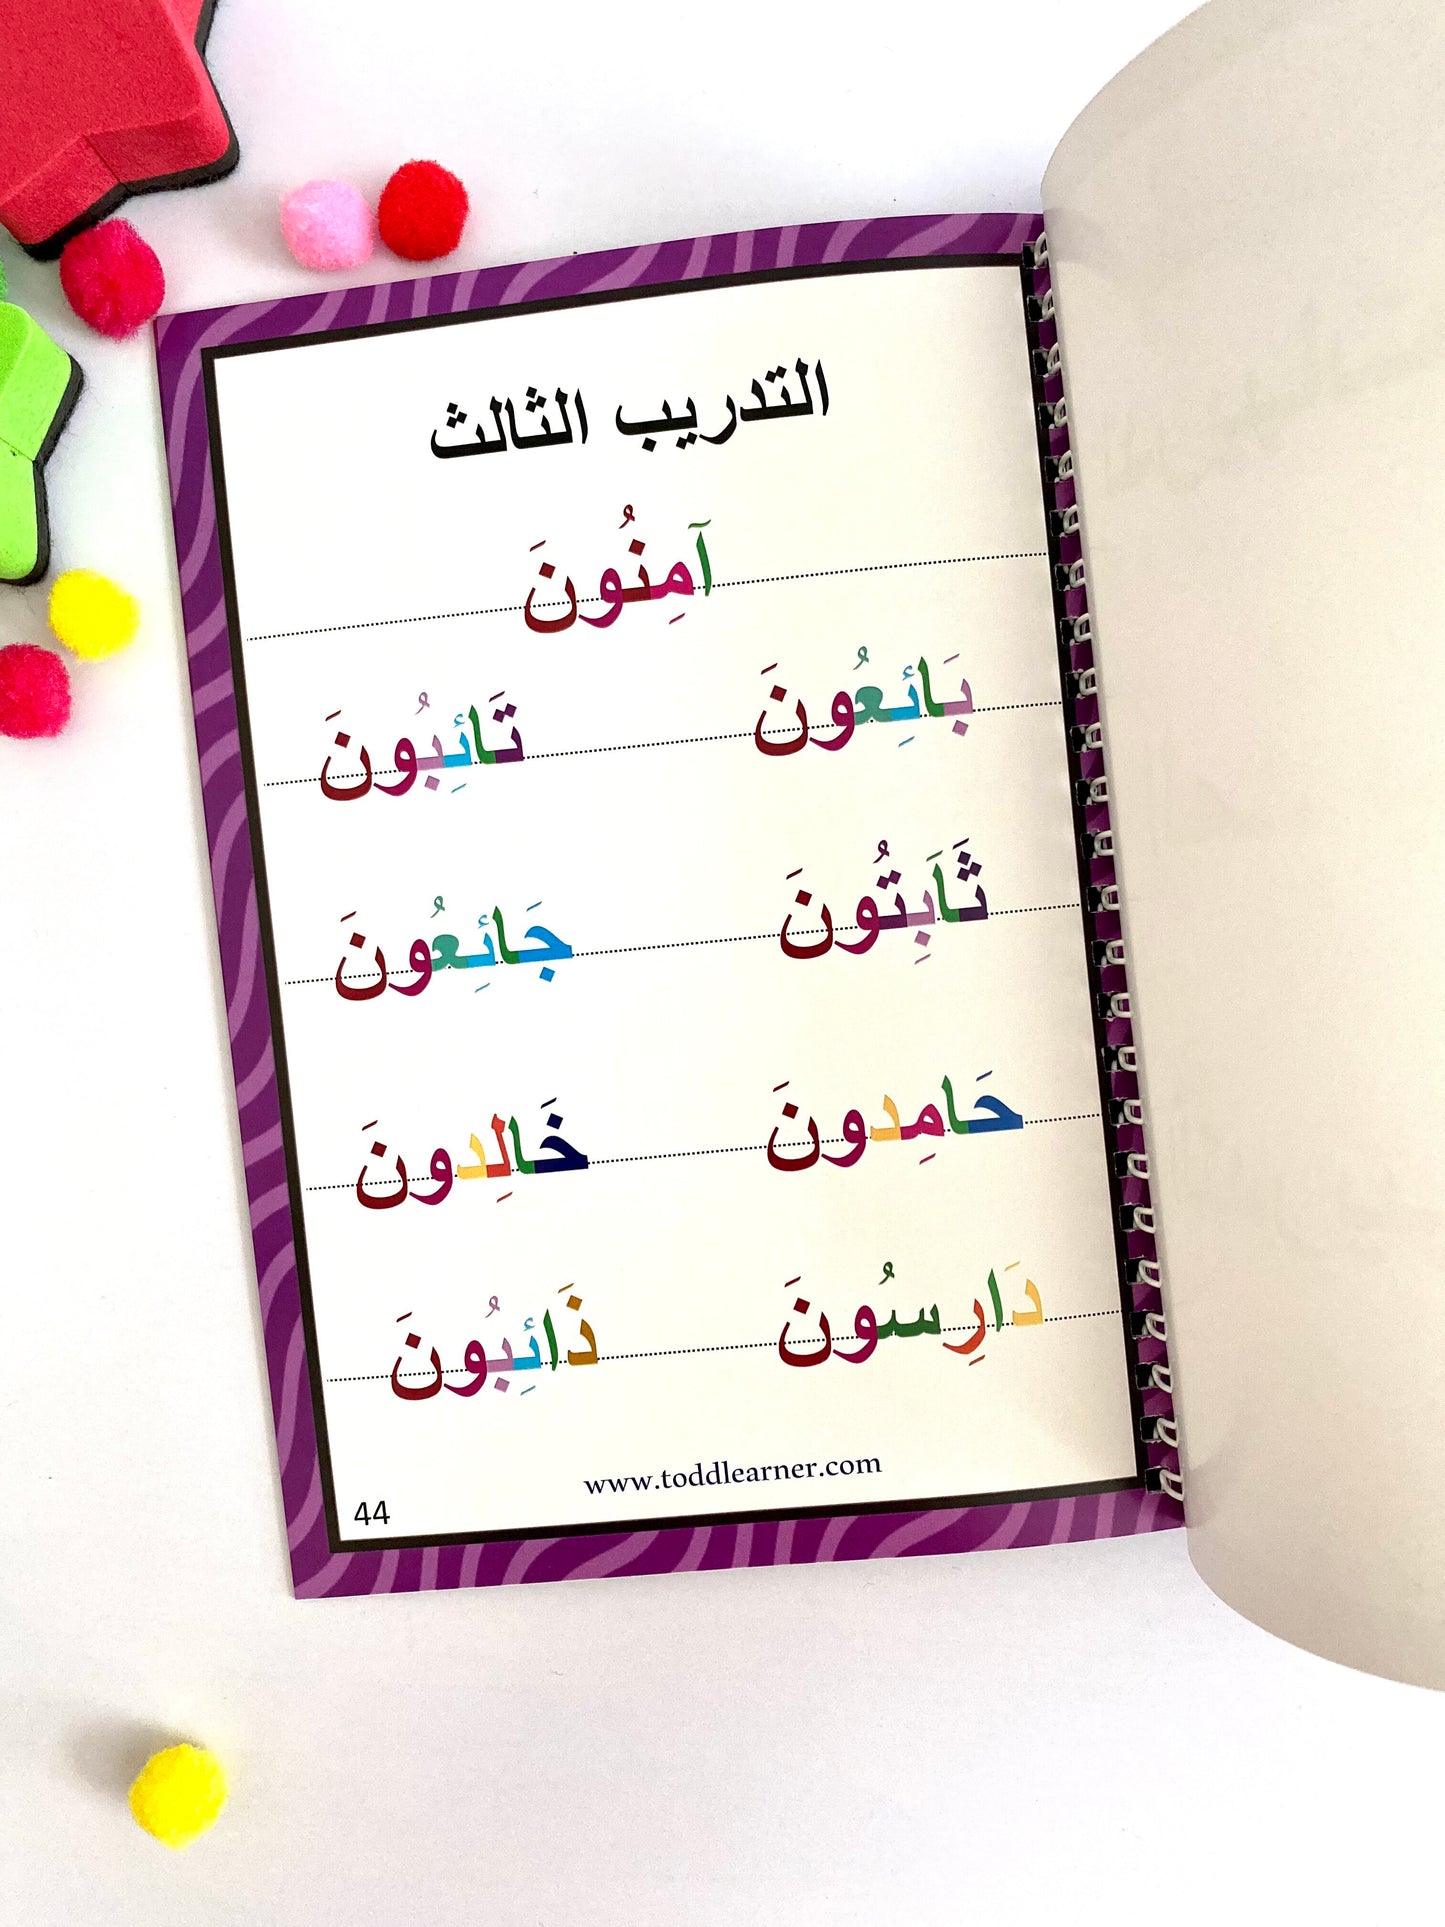 التدريب الثالث
آمِنُونَ
بَائِعُونَ تَائِبُونَ
ثَابِتُونَ جَائِعُونَ
حَامِدونَ خَالِدونَ
دَارِسُونَ ذَائِبُونَ
www.toddlearner.com
44